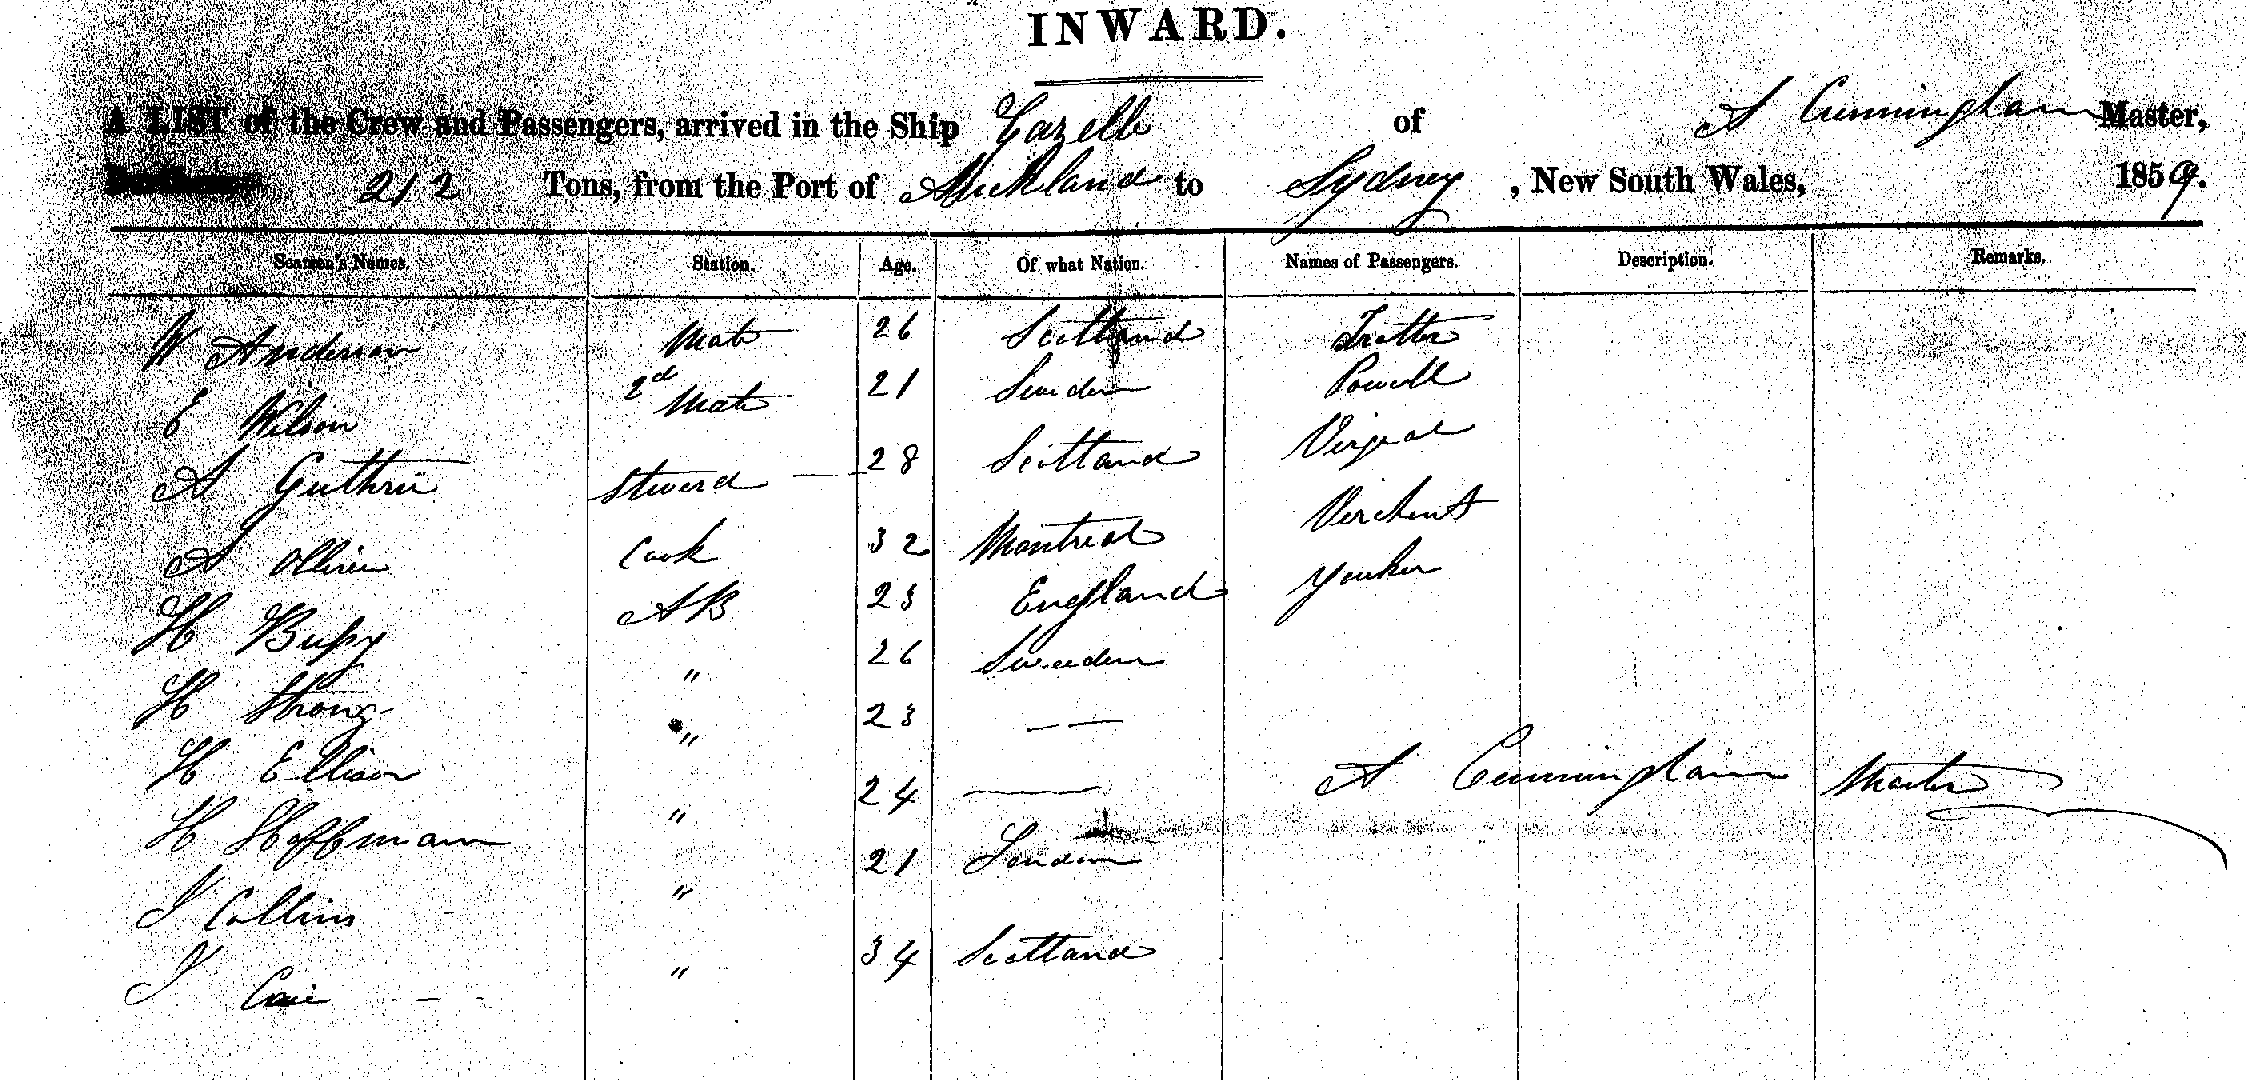 INWARD.
A LIST of the Crew and Passengers, arrived in the Ship Gazelle of A Cunningham Master,
212 Tons, from the Port of Auckland to Sydney, New South Wales, 1859.
Seamen's Names. Station. Age. Of what Nation. Names of Passengers. Description. Remarks.
W Anderson Mate 26 Scotland Trotter
E Wilson 2nd Mate 21 Sweden Powell
A Guthrie Stward 28 Scotland
A Cook 32 Montreal
H AB 23 England Yonker
H Strong " 26 Sweeden
H Ellison " 23 — —
H Hoffmann " 24 ——
J Collins " 21 London
J " 34 Scotland
A Cunningham Master